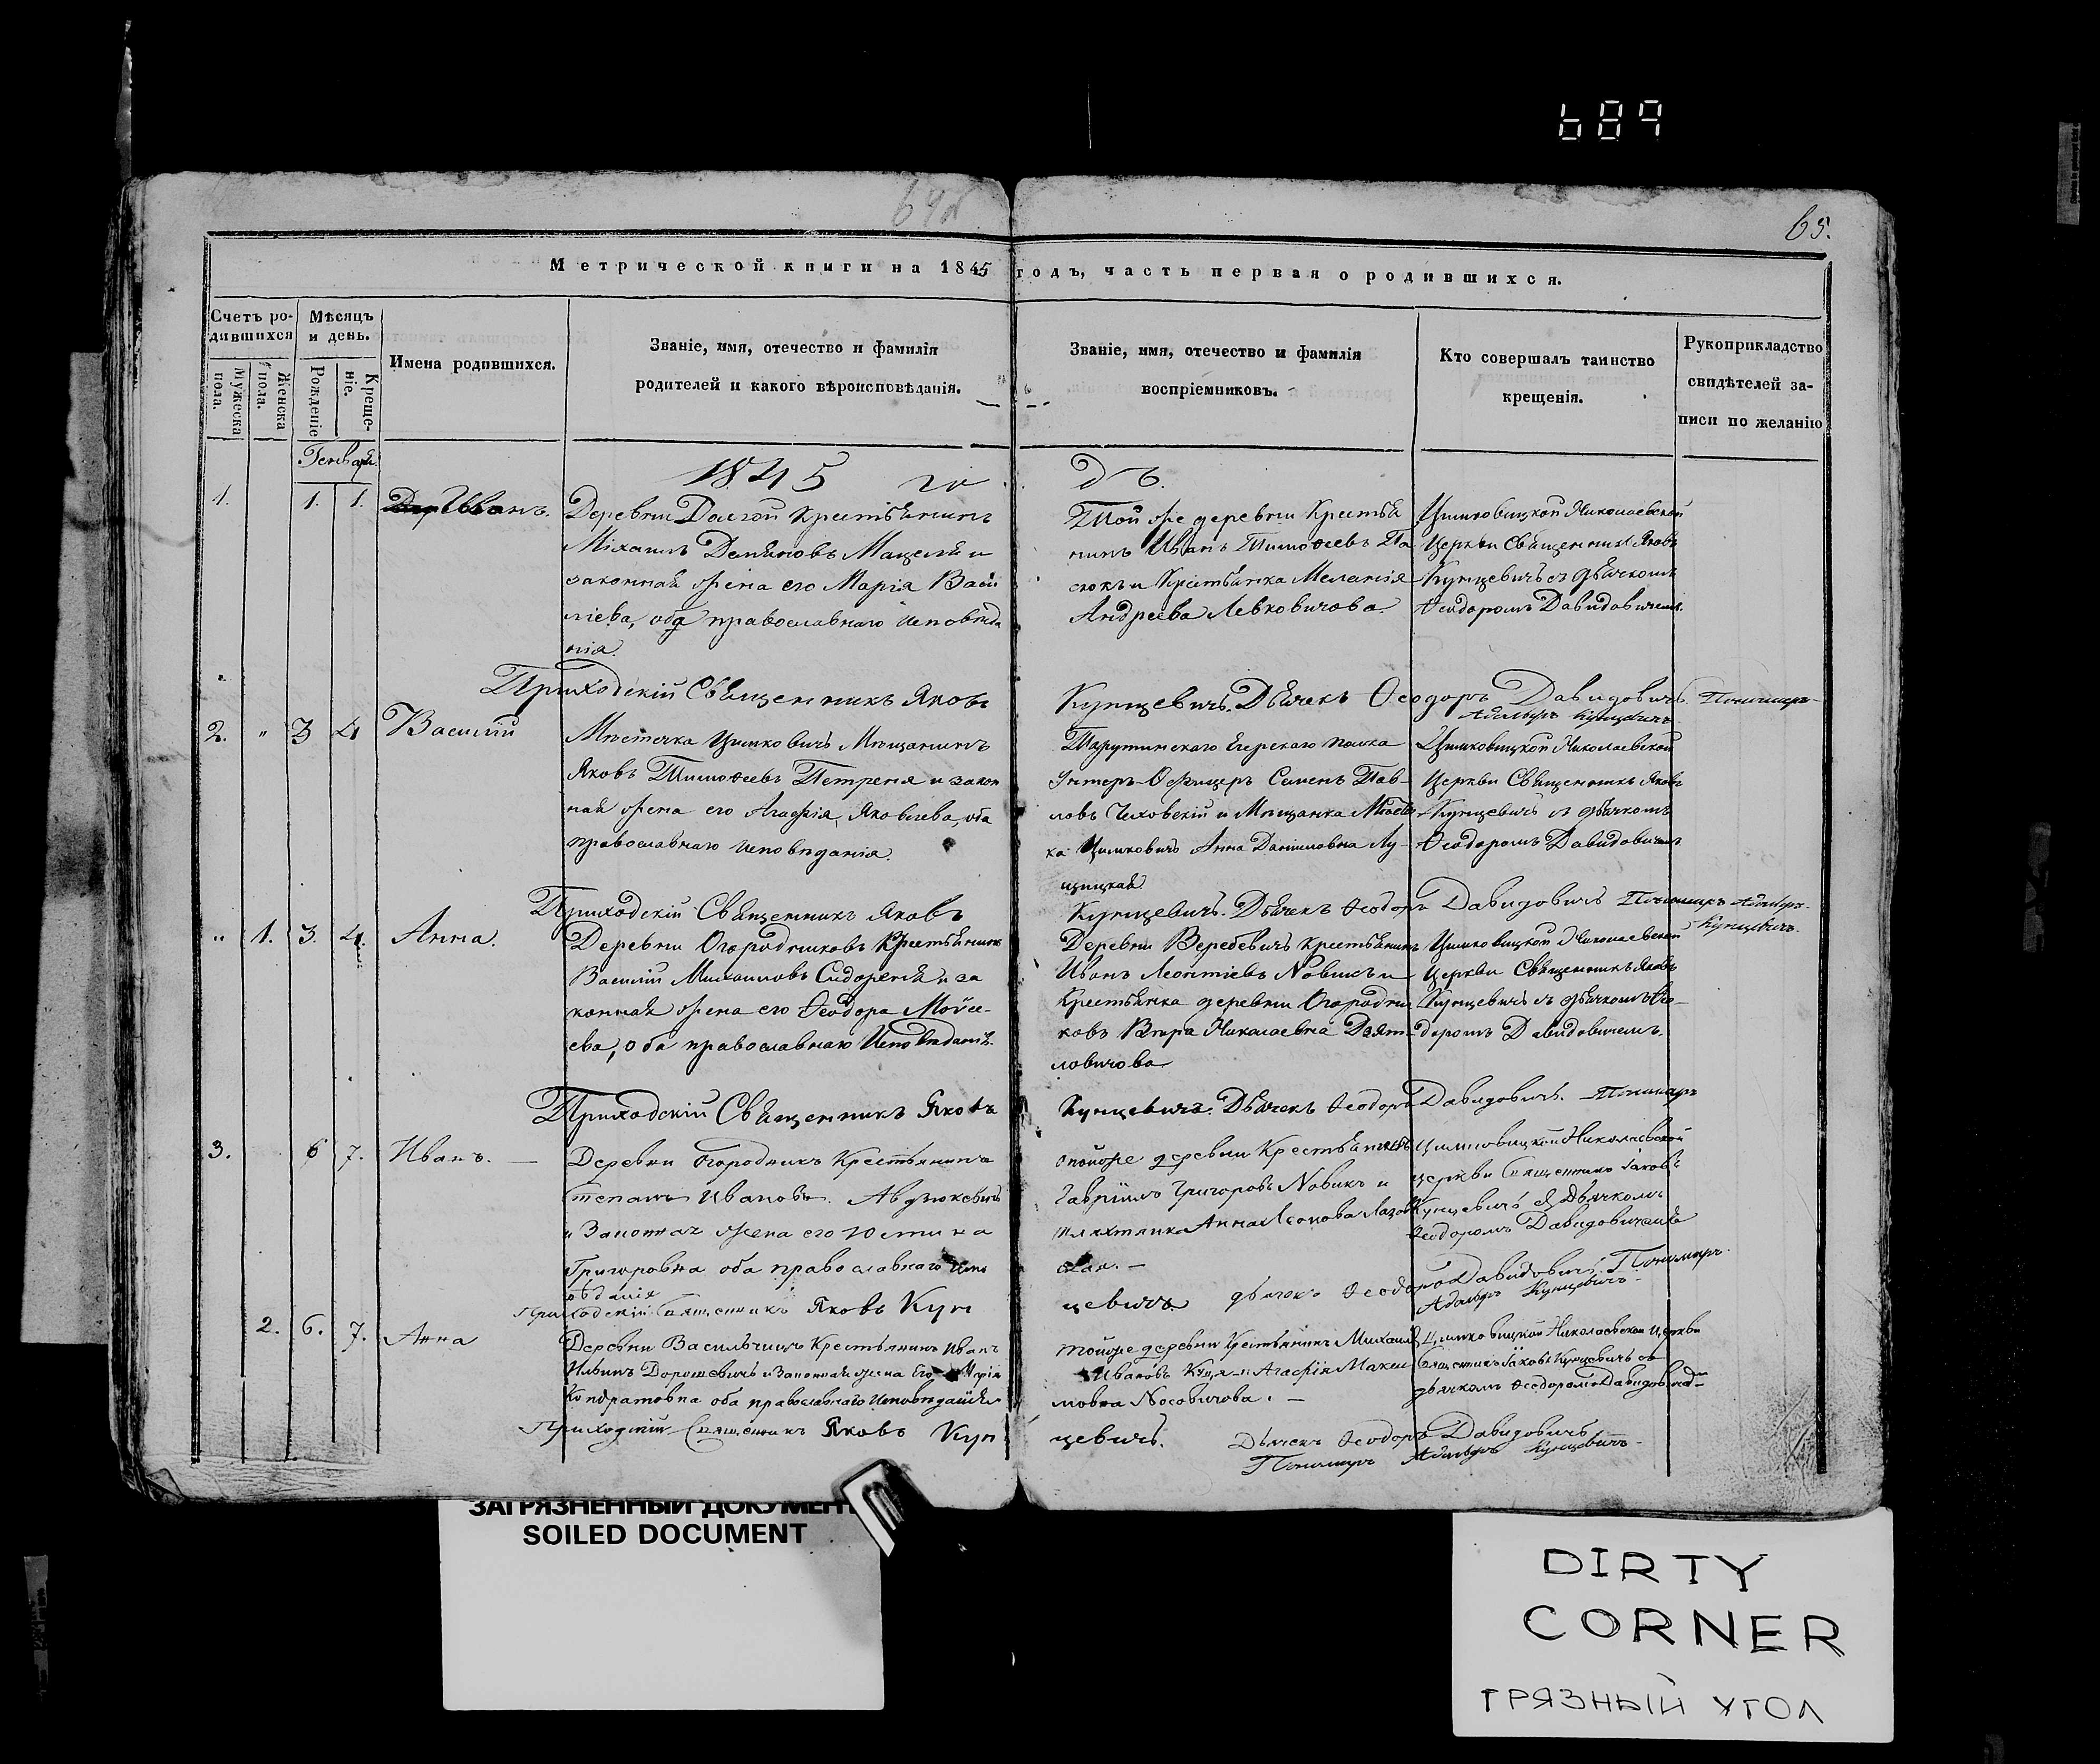 689
64об
65.
Метрической книги на 1845 годъ, часть первая о родившихся.
Счетъ ро-
дившихся
Мужеска
пола.
Женска
пола.
Мѣсяцъ
и день.
Рожденіе
Креще-
ніе.
Имена родившихся.
Званіе, имя, отечество и фамилія
родителей и какого вѣроисповѣданія.
Званіе, имя, отечество и фамилія
воспріемниковъ.
Кто совершалъ таинство
крещенія.
Рукоприкладство
свидѣтелей за-
писи по желанію
Генварь
1845 го дъ.
1. 1. 1. Иванъ.
Деревни Долгой крестьянинъ
Міхаилъ Даниловъ Мацеля и
законная жена его Марія Васи
лiева, оба православнаго исповѣда
нія.
Той же деревни Крестья
нинъ Иванъ Тимофеевъ Па
сюкъ и Крестьянка Меланія
Андреева Левковичова.
Цимковицкой Николаевской
Церкви Священникъ Яковъ
Кунцевичъ съ дьячкомъ
Ѳеодоромъ Давидовичемъ.
Приходскій Священникъ Яковъ Кунцевичъ. Дьячекъ Ѳеодоръ Давидовичъ. Пономарь
Адольфъ Кунцевичъ
2. " 3 4 Василій
Мѣстечка Цимковичъ Мѣщанинъ
Яковъ Тимофеевъ Петреня и закон
ная жена его Агафія, Яковлева, оба
православнаго исповѣданія.
Тарутинскаго Егерскаго полка
Унтеръ-Офицеръ Семенъ Пав-
ловъ Чеховскій и Мѣщанка Мѣстеч
ка Цимковичъ Анна Даниловна Лу-
щицкая.
Цимковицкой Николаевской
Церкви Священникъ Яковъ
Кунцевичъ съ дьячкомъ
Ѳеодоромъ Давидовичемъ
Приходскій Священникъ Яковъ Кунцевичъ. Дьячекъ Ѳеодоръ Давидовичъ Пономарь Адольфъ
Кунцевичъ.
" 1. 3. 4. Анна.
Деревни Огородниковъ Крестьянинъ
Василій Михаиловъ Сидореня и за
конная жена его Ѳеодора Мойсе-
ева, оба православнаго Исповѣданія.
Деревни Веребевичъ крестьянинъ
Иванъ Леонтіевъ Новикъ и
Крестьянка деревни Огородни
ковъ Вѣра Николаевна Дзят-
ловичова
Цимковицкой Николаевской
Церкви Священникъ Яковъ
Кунцевичъ съ дьячкомъ Ѳео-
доромъ Давидовичемъ.
Приходскій Священникъ Яковъ Кунцевичъ. Дьячекъ Ѳеодоръ Давидовичъ. Пономарь
3. 6 7. Иванъ.
Деревни Огородникъ Крестьянинъ
Степанъ Ивановъ Авдзюкевичъ
и Законная жена его Юстина
Григоровна оба православнаго Испо
вѣданія
тойже деревни Крестьянинъ
Гавріилъ Григоровъ Новикъ и
шляхтянка Анна
ская. —
Цимковицкой Николаевской
церкви Священникъ Іаковъ
Кунцевичъ съ Дьячкомъ
Ѳеодоромъ Давидовичемъ
Приходскій Священникъ Яковъ Кунцевичъ дьячокъ Ѳеодоръ Давидовичъ. Пономарь
Адольфъ Кунцевичъ
2. 6. 7. Анна
Деревни Васильчицъ Крестьянинъ Иванъ
Ильинъ Дорошевичъ и Законная жена Его Марія
Кондратовна оба православнаго Исповѣданія
тойже деревни Крестьянинъ Михаилъ
Ивановъ и Агафія Макси
мовна Носовичова. —
Цимковицкой Николаевской Церкви
Священникъ Іаковъ Кунцевичъ со
дьячкомъ Ѳеодоромъ Давидовичемъ
Приходскій Священникъ Яковъ Кунцевичъ. Дьячекъ Ѳеодоръ Давидовичъ
Пономарь Адольфъ Кунцевичъ
ЗАГРЯЗНЕННЫЙ ДОКУМЕНТ
SOILED DOCUMENT
DIRTY
CORNER
ГРЯЗНЫЙ УГОЛ